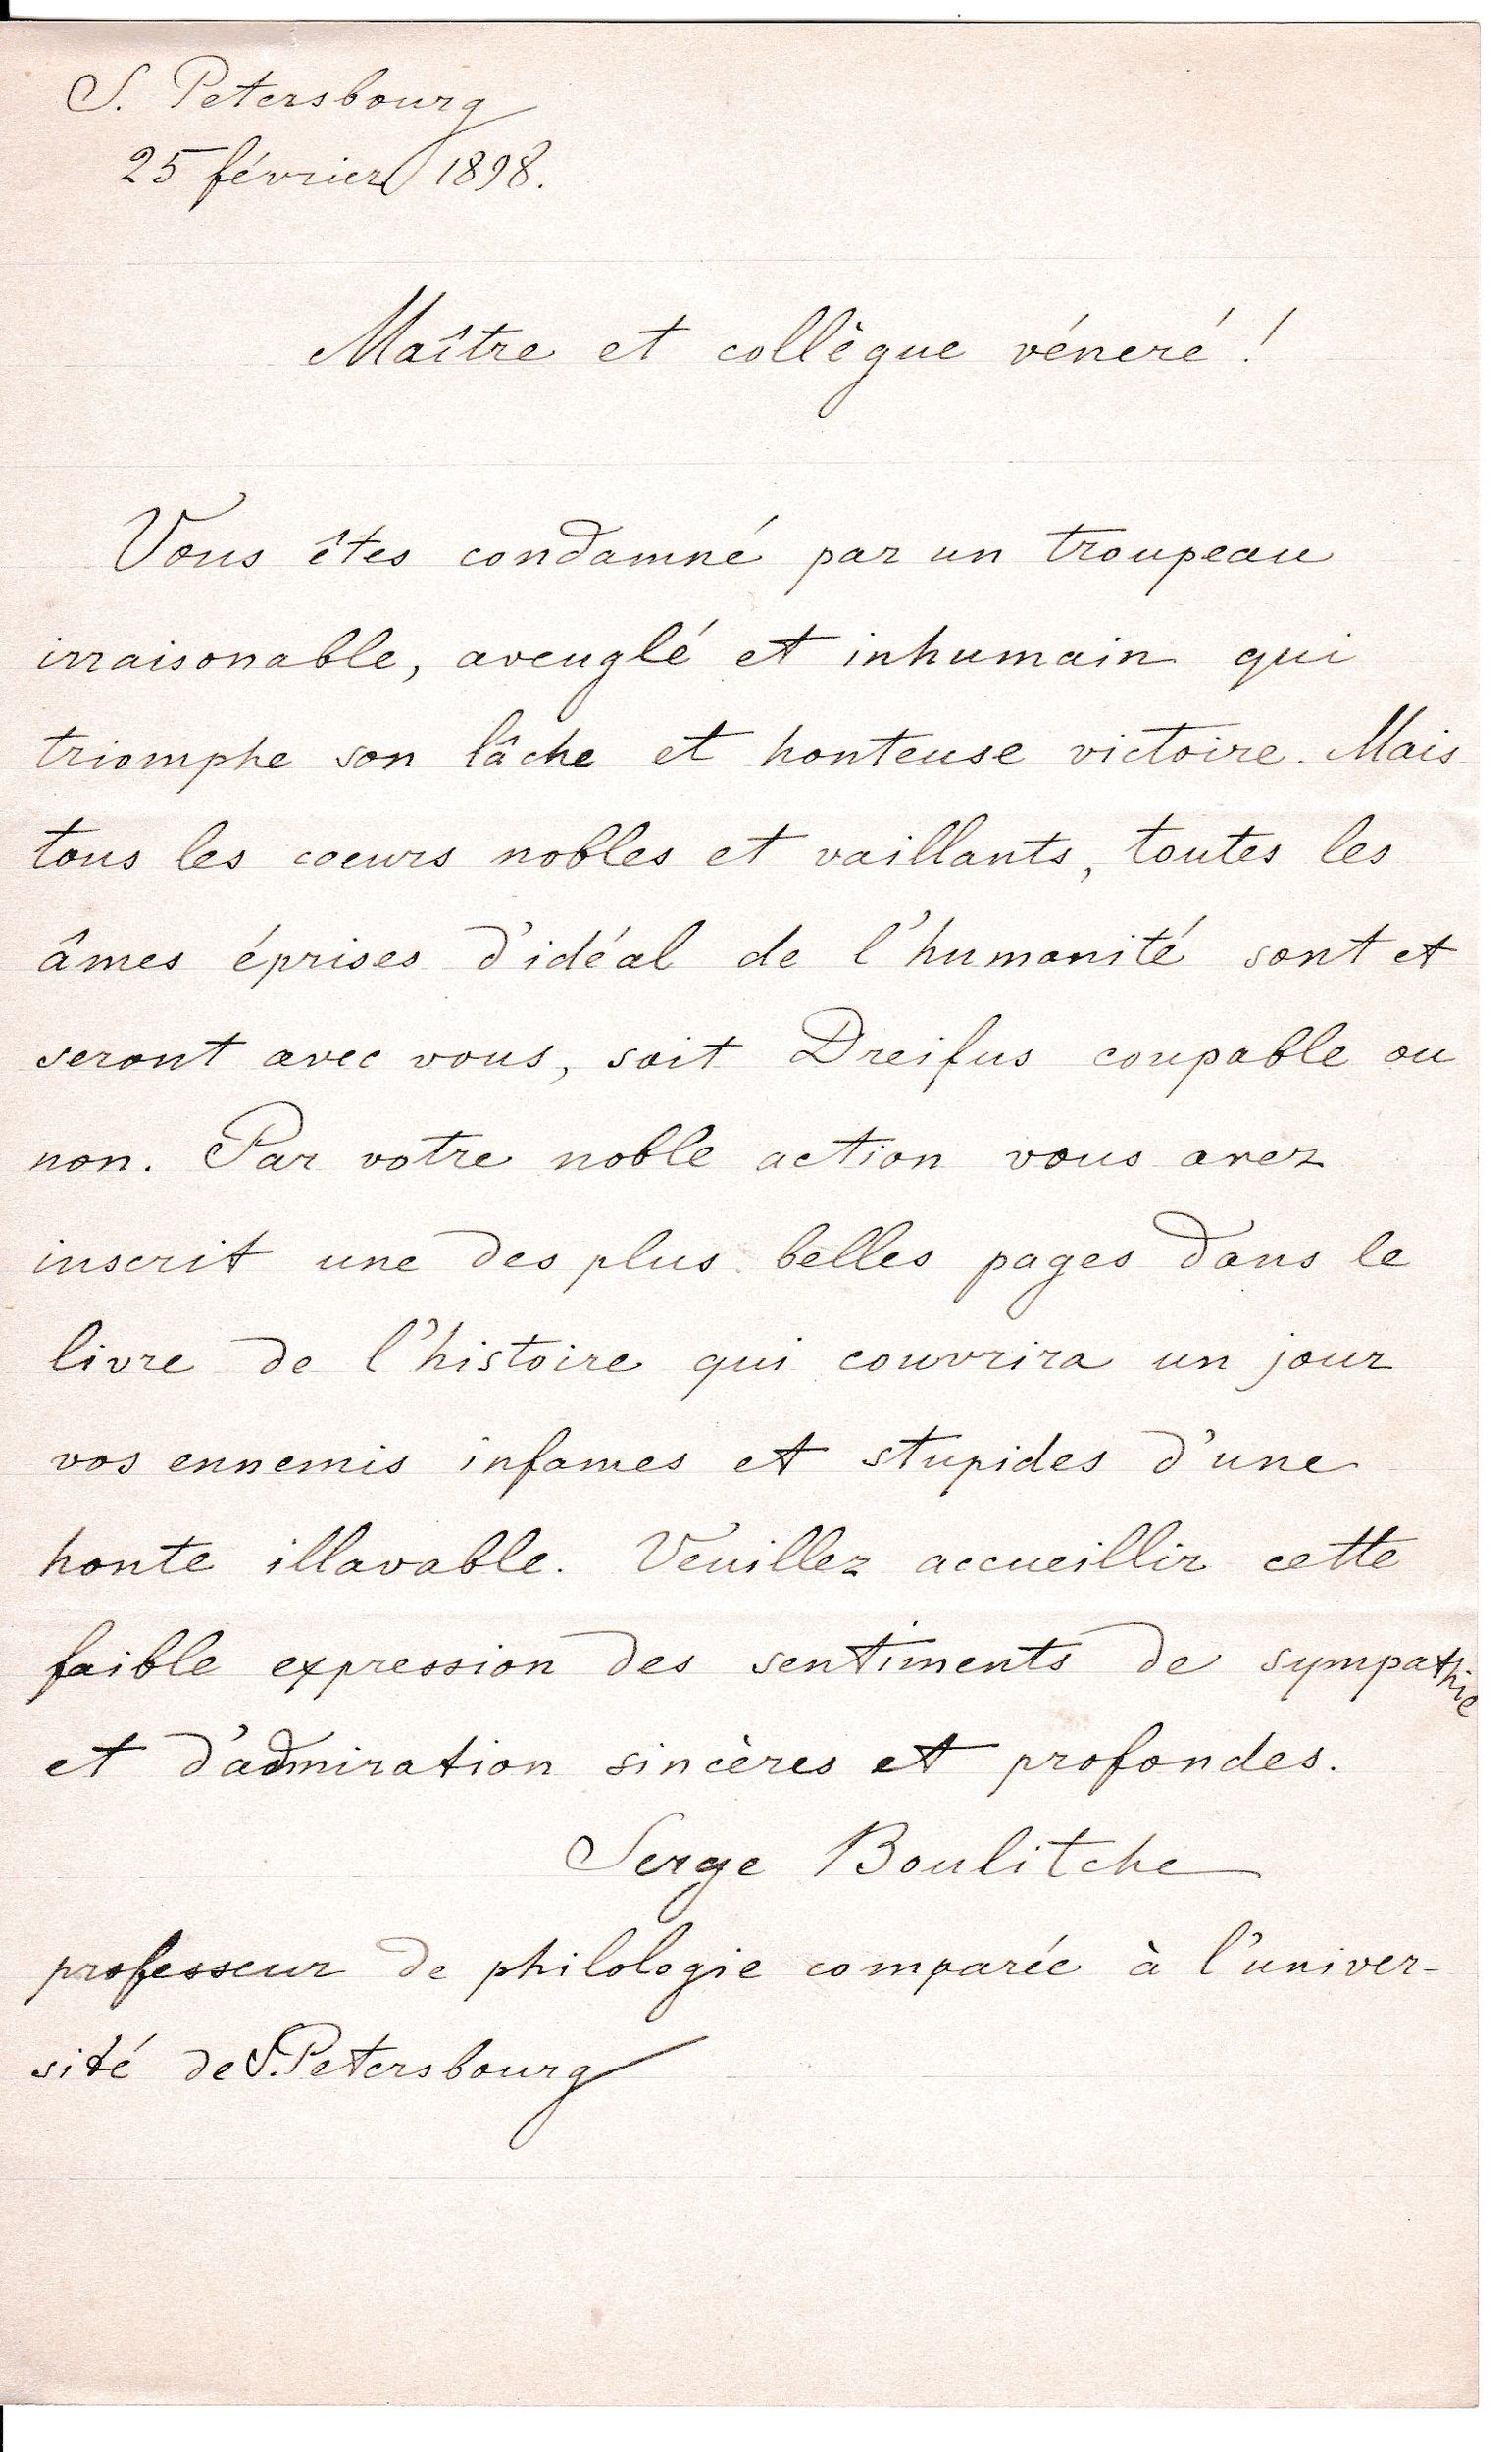 S. Petersbourg
25 février 1898.
Maître et collègue vénéré!
Vous êtes condamné par un troupeau
irraisonable, aveuglé et inhumain qui
triomphe son lâche et honteuse victoire. Mais
tous les coeurs nobles et vaillants, toutes les
âmes éprises d'idéal de l'humanité sont et
seront avec vous, soit Dreifus coupable ou
non. Par votre noble action vous avez
inscrit une des plus belles pages dans le
livre de l'histoire qui couvrira un jour
vos ennemis infames et stupides d'une
honte illavable. Veuillez accueillir cette
faible expression des sentiments de sympathie
et d'admiration sincères et profondes.
Serge Boulitche
professeur de philologie comparée à l'univer-
sité de S. Petersbourg